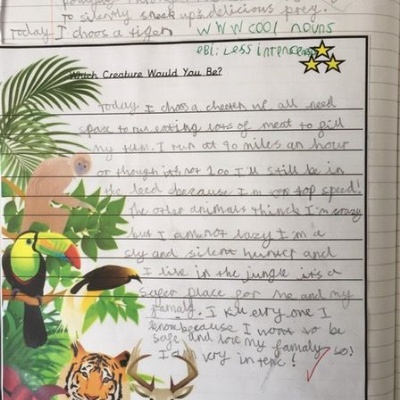 to silently sneek up's delicious prey.
Today I choos a tiger
WWW cool nouns
ebi: Less intenc
Which Creature Would You Be?
Today I choos a cheetah we all need
space to run eating lots of meat to fill
my tum. I run at 90 miles an hour
or though it's not 200 I'll still be in
the leed because I'm on top speed!
the other animals think I'm crazy
but I am not lazy I'm a
sly and silent hunter and
I live in the jungle it's a
safer place for me and my
famaly. I kill evry one I
know because I wont to be
safe and love my famaly so!
I am very intenc!